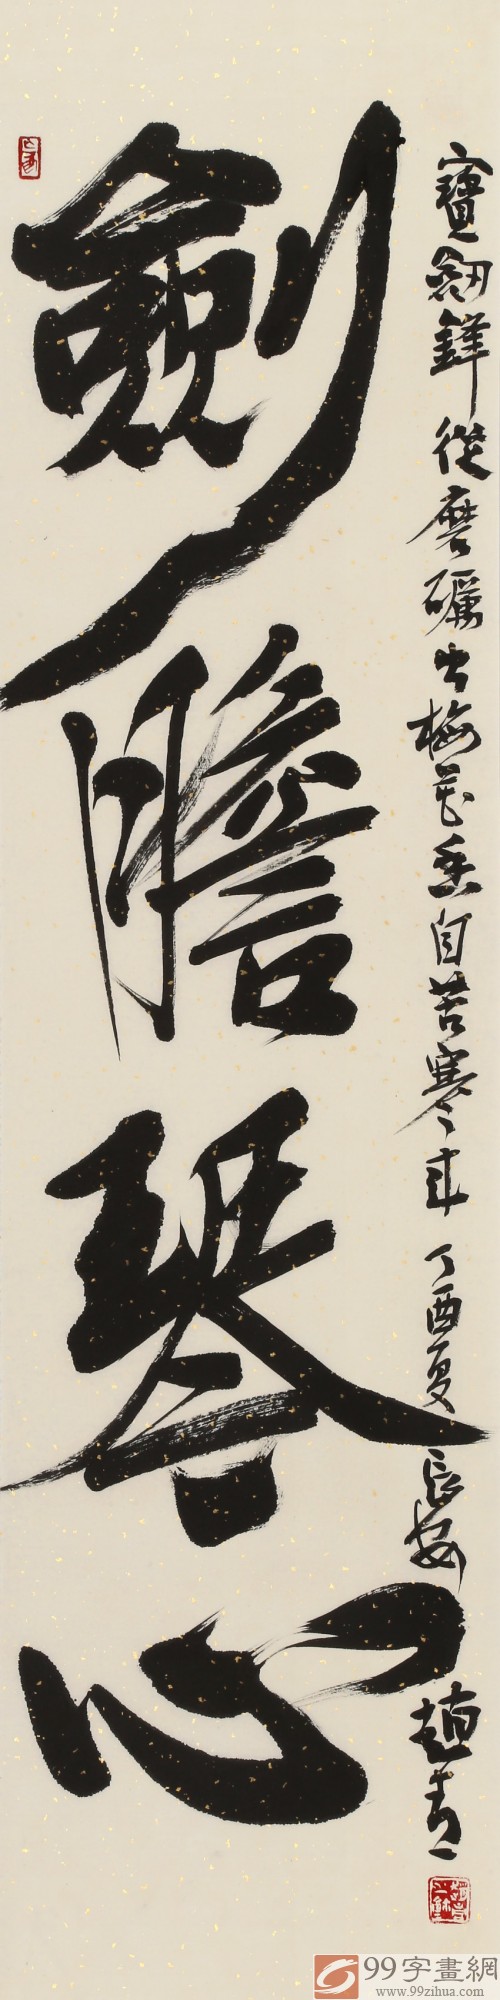 劍膽琴心
寶劍鋒從磨礪出梅花香自苦寒來 丁酉夏 長安 趙青
99字畫網
www.99zihua.com